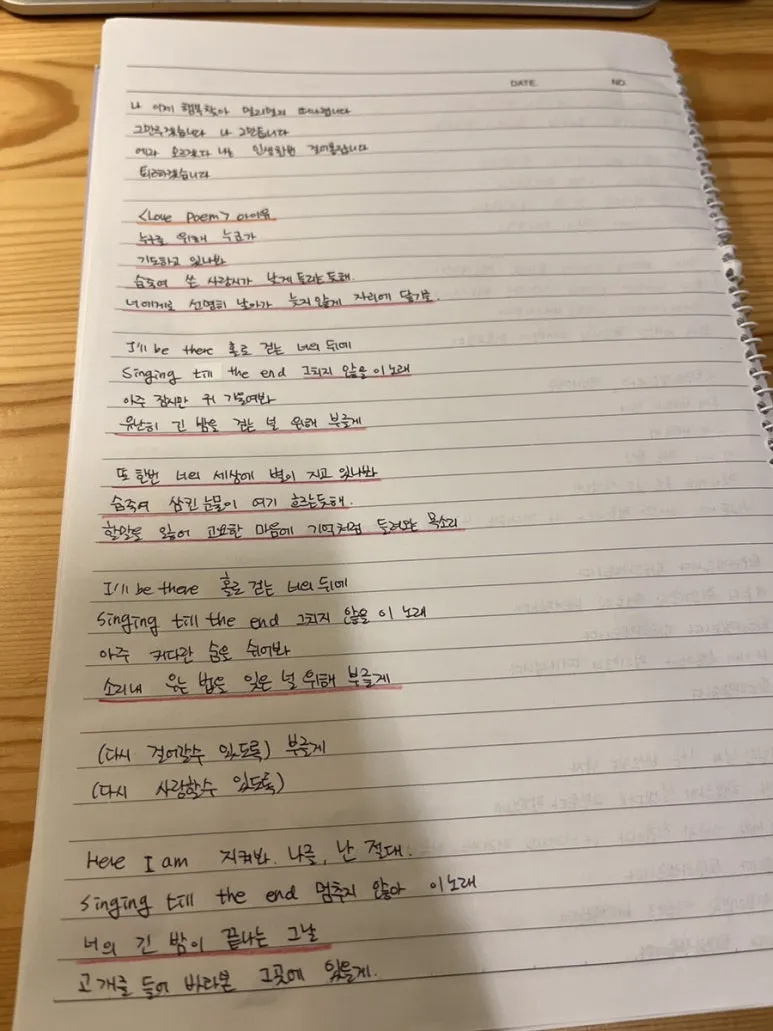 DATE. NO.
나 이제 행복찾아 멀리멀리 떠나렵니다
그만두겠습니다 나 그만둡니다
에라 모르겠다 나는 인생한번 걸어볼랍니다
퇴근하겠습니다
<Love Poem> 아이유
누구를 위해 누군가
기도하고 있나봐
숨죽여 쓴 사랑시가 낮게 들리는듯해.
너에게로 선명히 날아가 늦지않게 자리에 닿기를.
I'll be there 홀로 걷는 너의 뒤에
Singing till the end 그치지 않을 이 노래
아주 잠시만 귀 기울여봐
유난히 긴 밤을 걷는 널 위해 부를게
또 한번 너의 세상에 별이 지고 있나봐
숨죽여 삼킨 눈물이 여기 흐르는듯해.
할말을 잃어 고요한 마음에 기억처럼 들려오는 목소리
I'll be there 홀로 걷는 너의 뒤에
Singing till the end 그치지 않을 이 노래
아주 커다란 숨을 쉬어봐
소리내 우는 법을 잊은 널 위해 부를게
(다시 걸어갈수 있도록) 부를게
(다시 사랑할수 있도록)
Here I am 지켜봐. 나를, 난 절대.
Singing till the end 멈추지 않아 이 노래
너의 긴 밤이 끝나는 그날
고개를 들어 바라본 그곳에 있을게.